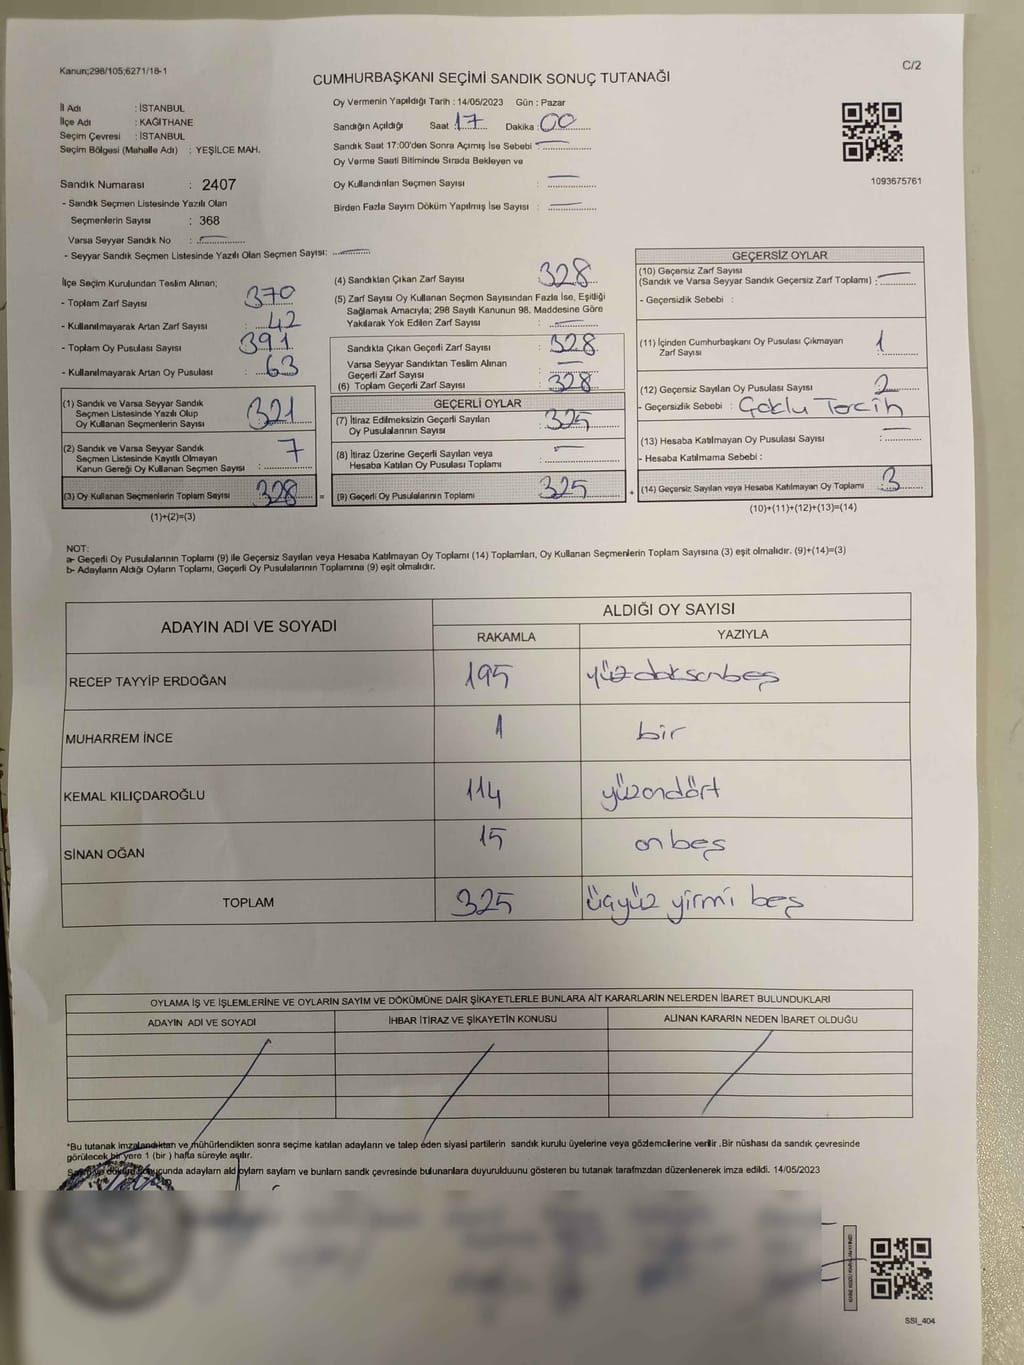 Kanun;298/105;6271/18-1
C/2
CUMHURBAŞKANI SEÇİMİ SANDIK SONUÇ TUTANAĞI
İl Adı : İSTANBUL
İlçe Adı : KAĞITHANE
Seçim Çevresi : İSTANBUL
Seçim Bölgesi (Mahalle Adı) : YEŞİLCE MAH.
Sandık Numarası : 2407
- Sandık Seçmen Listesinde Yazılı Olan
Seçmenlerin Sayısı : 368
Varsa Seyyar Sandık No :
- Seyyar Sandık Seçmen Listesinde Yazılı Olan Seçmen Sayısı:
Oy Vermenin Yapıldığı Tarih : 14/05/2023 Gün : Pazar
Sandığın Açıldığı Saat : 17 Dakika : 00
Sandık Saat 17:00'den Sonra Açımış İse Sebebi :
Oy Verme Saati Bitiminde Sırada Bekleyen ve
Oy Kullandırılan Seçmen Sayısı :
Birden Fazla Sayım Döküm Yapılmış İse Sayısı :
1093675761
İlçe Seçim Kurulundan Teslim Alınan;
- Toplam Zarf Sayısı : 370
- Kullanılmayarak Artan Zarf Sayısı : 42
- Toplam Oy Pusulası Sayısı : 391
- Kullanılmayarak Artan Oy Pusulası : 63
(1) Sandık ve Varsa Seyyar Sandık
Seçmen Listesinde Yazılı Olup
Oy Kullanan Seçmenlerin Sayısı : 321
(2) Sandık ve Varsa Seyyar Sandık
Seçmen Listesinde Kayıtlı Olmayan
Kanun Gereği Oy Kullanan Seçmen Sayısı : 7
(3) Oy Kullanan Seçmenlerin Toplam Sayısı : 328
(1)+(2)=(3)
(4) Sandıktan Çıkan Zarf Sayısı : 328
(5) Zarf Sayısı Oy Kullanan Seçmen Sayısından Fazla İse, Eşitliği
Sağlamak Amacıyla; 298 Sayılı Kanunun 98. Maddesine Göre
Yakılarak Yok Edilen Zarf Sayısı :
Sandıkta Çıkan Geçerli Zarf Sayısı : 328
Varsa Seyyar Sandıktan Teslim Alınan
Geçerli Zarf Sayısı :
(6) Toplam Geçerli Zarf Sayısı : 328
GEÇERLİ OYLAR
(7) İtiraz Edilmeksizin Geçerli Sayılan
Oy Pusulalarının Sayısı : 325
(8) İtiraz Üzerine Geçerli Sayılan veya
Hesaba Katılan Oy Pusulası Toplamı :
= (9) Geçerli Oy Pusulalarının Toplamı : 325
GEÇERSİZ OYLAR
(10) Geçersiz Zarf Sayısı
(Sandık ve Varsa Seyyar Sandık Geçersiz Zarf Toplamı) :
- Geçersizlik Sebebi :
(11) İçinden Cumhurbaşkanı Oy Pusulası Çıkmayan
Zarf Sayısı : 1
(12) Geçersiz Sayılan Oy Pusulası Sayısı : 2
- Geçersizlik Sebebi : Çoklu Tercih
(13) Hesaba Katılmayan Oy Pusulası Sayısı :
- Hesaba Katılmama Sebebi :
+ (14) Geçersiz Sayılan veya Hesaba Katılmayan Oy Toplamı : 3
(10)+(11)+(12)+(13)=(14)
NOT:
a- Geçerli Oy Pusulalarının Toplamı (9) ile Geçersiz Sayılan veya Hesaba Katılmayan Oy Toplamı (14) Toplamları, Oy Kullanan Seçmenlerin Toplam Sayısına (3) eşit olmalıdır. (9)+(14)=(3)
b- Adayların Aldığı Oyların Toplamı, Geçerli Oy Pusulalarının Toplamına (9) eşit olmalıdır.
ADAYIN ADI VE SOYADI
ALDIĞI OY SAYISI
RAKAMLA YAZIYLA
RECEP TAYYİP ERDOĞAN 195 yüzdoksanbeş
MUHARREM İNCE 1 bir
KEMAL KILIÇDAROĞLU 114 yüzondört
SİNAN OĞAN 15 onbeş
TOPLAM 325 üçyüz yirmi beş
OYLAMA İŞ VE İŞLEMLERİNE VE OYLARIN SAYIM VE DÖKÜMÜNE DAİR ŞİKAYETLERLE BUNLARA AİT KARARLARIN NELERDEN İBARET BULUNDUKLARI
ADAYIN ADI VE SOYADI İHBAR İTİRAZ VE ŞİKAYETİN KONUSU ALINAN KARARIN NEDEN İBARET OLDUĞU
*Bu tutanak imzalandıktan ve mühürlendikten sonra seçime katılan adayların ve talep eden siyasi partilerin sandık kurulu üyelerine veya gözlemcilerine verilir .Bir nüshası da sandık çevresinde
görülecek bir yere 1 (bir ) hafta süreyle asılır.
adayların ald oyların sayların ve bunların sandk çevresinde bulunanlara duyurulduunu gösteren bu tutanak tarafmzdan düzenlenerek imza edildi. 14/05/2023
SSI_404